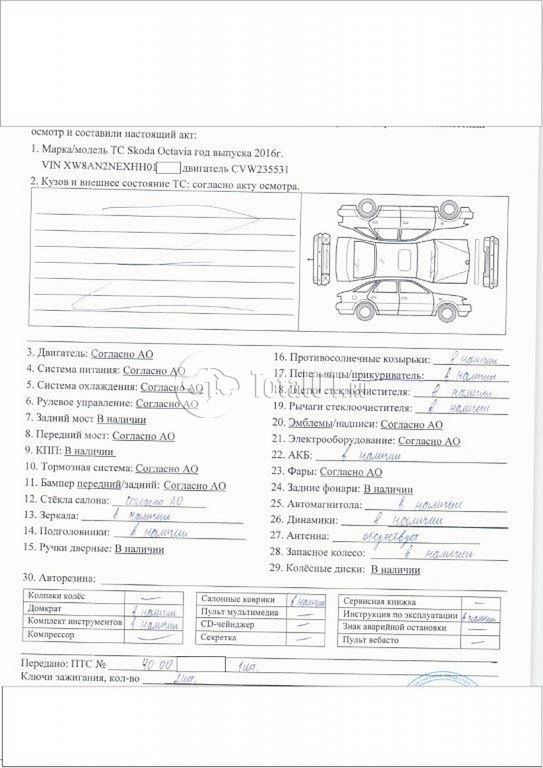 осмотр и составили настоящий акт:
1. Марка/модель ТС Skoda Octavia год выпуска 2016г.
VIN XW8AN2NEXHH01 двигатель CVW235531
2. Кузов и внешнее состояние ТС: согласно акту осмотра.
3. Двигатель: Согласно АО
4. Система питания: Согласно АО
5. Система охлаждения: Согласно АО
6. Рулевое управление: Согласно АО
7. Задний мост В наличии
8. Передний мост: Согласно АО
9. КПП: В наличии
10. Тормозная система: Согласно АО
11. Бампер передний/задний: Согласно АО
12. Стёкла салона: согласно АО
13. Зеркала: в наличии
14. Подголовники: в наличии
15. Ручки дверные: В наличии
16. Противосолнечные козырьки: в наличии
17. Пепельницы/прикуриватель: в наличии
18. Щетки стеклоочистителя: в наличии
19. Рычаги стеклоочистителя: в наличии
20. Эмблемы/надписи: Согласно АО
21. Электрооборудование: Согласно АО
22. АКБ: в наличии
23. Фары: Согласно АО
24. Задние фонари: В наличии
25. Автомагнитола: в наличии
26. Динамики: в наличии
27. Антенна: отсутствует
28. Запасное колесо: в наличии
29. Колёсные диски: В наличии
30. Авторезина:
Колпаки колёс —
Домкрат в наличии
Комплект инструментов в наличии
Компрессор —
Салонные коврики в наличии
Пульт мультимедиа —
CD-чейнджер —
Секретка —
Сервисная книжка —
Инструкция по эксплуатации в наличии
Знак аварийной остановки —
Пульт вебасто —
Передано: ПТС № 40 00 1шт.
Ключи зажигания, кол-во 2шт.